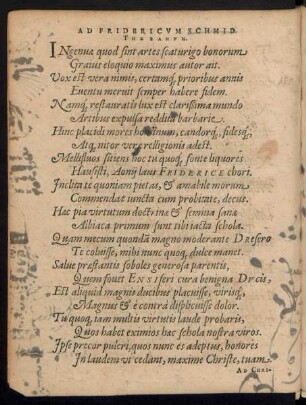 AD FRIDERICVM SCHMID
INgenuæ quod sint artes scaturigo bonorum
Grauis eloquio maximus autor ait.
Vox est vera nimis, certamq́; prioribus annis
Euentu meruit semper habere fidem.
Namq́; restauratis lux est clarissima mundo
Artibus expulsa reddita barbarie.
Hinc placidi mores hominum, candorq́;, fidesq́;,
Atq; nitor veræ relligionis adest.
Mellifluos sitiens hoc tu quoq́; fonte liquores
Hausisti, Aonij laus FRIDERICE chori.
Inclita te quoniam pietas, & amabile morum
Commendat iuncta cum probitate, decus.
Hac pia virtutum doctrinæ & semina sana
Albiaca primum sunt tibi iacta schola.
Quam mecum quondā magno moderante DResero
Te coluisse, mihi nunc quoq́; dulce manet.
Salue præstantis soboles generosa parentis,
Quem fouet ENSiferi cura benigna DVcis,
Est aliquid magnis ductibus placuisse, virisq́;
Magnus & è contrà displicuisse dolor.
Tu quoq́; iam multis virtutis laude probaris,
Quos habet eximios hac schola nostra viros.
Ipse precor pulcri, quos nunc es adeptus, honores
In laudem vt cedant, maxime Christe, tuam.